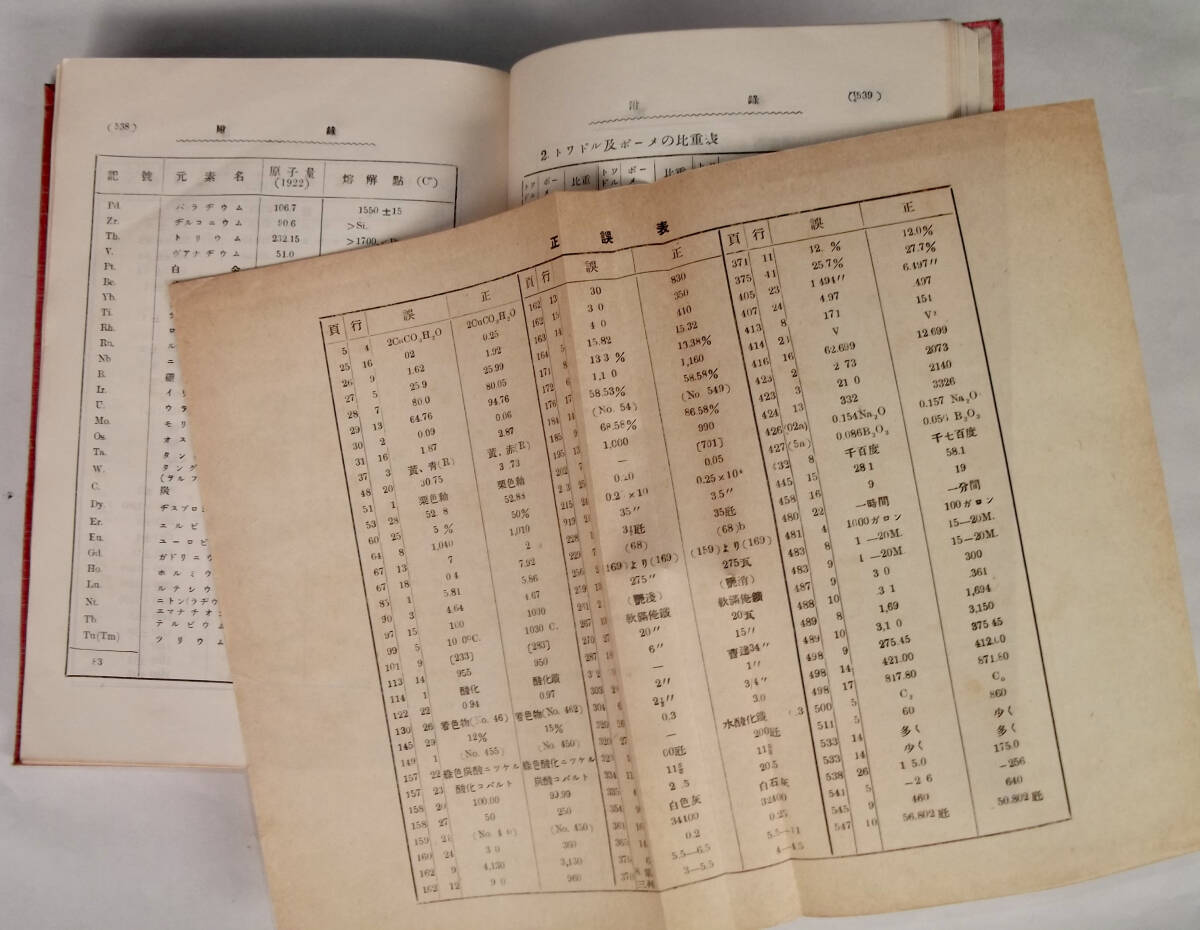 (538) 附錄
記號 元素名 原子量(1922) 熔解點(C°)
Pd. パラヂウム 106.7 1550±15
Zr. ヂルコニウム 90.6 >Si.
Th. トリウム 232.15 >1700
V. ヴアナヂウム 51.0
Pt. 白金
Be.
Yb.
Ti.
Rh. ロ
Ru. ル
Nb ニ
B. 硼
Ir. イリ
U. ウラ
Mo. モリ
Os. オス
Ta. タン
W. タング
(ヲルフ
C. 炭
Dy. ヂスプロシ
Er. エルビ
Eu. ユーロピ
Gd. ガドリニウ
Ho. ホルミウ
Lu. ルテシウ
Nt. ニトン(ラヂウ
エマナチオ
Tb テルビウム
Tu(Tm) ツリウム
83
附錄 (539)
2. トワドル及ボーメの比重表
トワドル ボーメ 比重 トワドル ボーメ 比重
正誤表
頁 行 誤 正
5 4 2CuCO₃H₂O 2CuCO₃H₂O
25 16 02 0.25
26 9 1.62 1.92
27 5 25.9 25.99
28 7 80.0 80.05
29 13 64.76 94.76
30 2 0.09 0.06
31 16 1.87 2.87
37 3 黃、青(R) 黃、赤(R)
48 20 30.75 3 73
51 1 栗色釉 栗色釉
53 28 52.8 52.88
60 25 5 % 50%
64 8 1,040 1,010
67 13 7 2
67 18 04 7.92
85 1 5.81 5.86
90 3 4.64 4.67
97 15 100 1000
99 5 10 0°C. 1030 C.
101 9 [233] [283]
113 14 955 950
114 1 酸化 酸化鐵
122 22 0.94 0.97
130 26 着色物(No. 46) 着色物(No. 462)
145 29 12% 15%
149 1 (No. 455) (No. 450)
157 22 綠色炭酸ニツケル 綠色酸化ニツケル
157 23 酸化コバルト 炭酸コバルト
158 20 100.00 99.99
158 27 50 250
159 21 (No. 4 0) (No. 450)
160 24 3 0 360
162 9 4,130 3,130
162 12 9 0 960
頁 行 誤 正
162 13 30 830
162 15 3 0 350
163 14 4 0 410
164 5 15.82 15.32
171 8 13 3 % 13.38%
172 6 1,1 0 1,160
176 17 58.53% 58.58%
184 14 (No. 54) (No. 549)
185 9 68.58% 86.58%
195 13 1,000 990
202 7 — [701]
0.20 0.05
215 0.2 × 10 0.25×10⁴
35″ 3.5″
228 3½瓩 35瓩
229 7 (68) (68)b
256 169)より(169) (159)より(169)
259 13 275″ 275瓦
261 2 (艷淺) (艷消)
267 13 軟滿俺鐵 軟滿俺鑛
270 27 20″ 20瓦
287 18 6″ 15″
— 曹達34″
303 2″ 1″
304 6 2½″ 3/4″
320 0.3 3.0
320 27 — 水酸化鐵 0.3
60瓩 200瓩
334 11
335 4 2 .5 20.5
354 9 白色灰 白石灰
361 16 34100 32400
365 14 0.2 0.25
375 6 5.5—6.5 5.5—11
3—5.5 4—4.5
頁 行 誤 正
371 11 12. % 12.0%
375 41 25.7% 27.7%
405 23 1 494″ 6.497″
407 24 4.97 497
413 8 171 151
414 21 V V²
416 16 62.699 12.699
423 2 2 73 2073
423 3 21 0 2140
424 13 332 3326
426(02a) 0.154Na₂O 0.157 Na₂O
427(5a) 0.086B₂O₃ 0.056 B₂O₃
432 8 千百度 千七百度
445 15 28 1 58.1
458 16 9 19
480 22 一時間 一分間
481 4 1000ガロン 100ガロン
483 8 1 —20M. 15—20M.
483 9 1 —20M. 15—20M.
487 9 3 0 300
488 10 3 1 .361
489 8 1,69 1,694
489 10 3,1 0 3,150
498 9 275.45 375 45
498 14 421.00 412.00
498 17 817.80 871.80
500 5 C₂ C₀
511 5 60 860
533 14 多く 少く
533 14 少く 多く
538 26 1 5.0 175.0
541 5 −2 6 −256
545 9 460 640
547 10 56.802瓩 50.802瓩